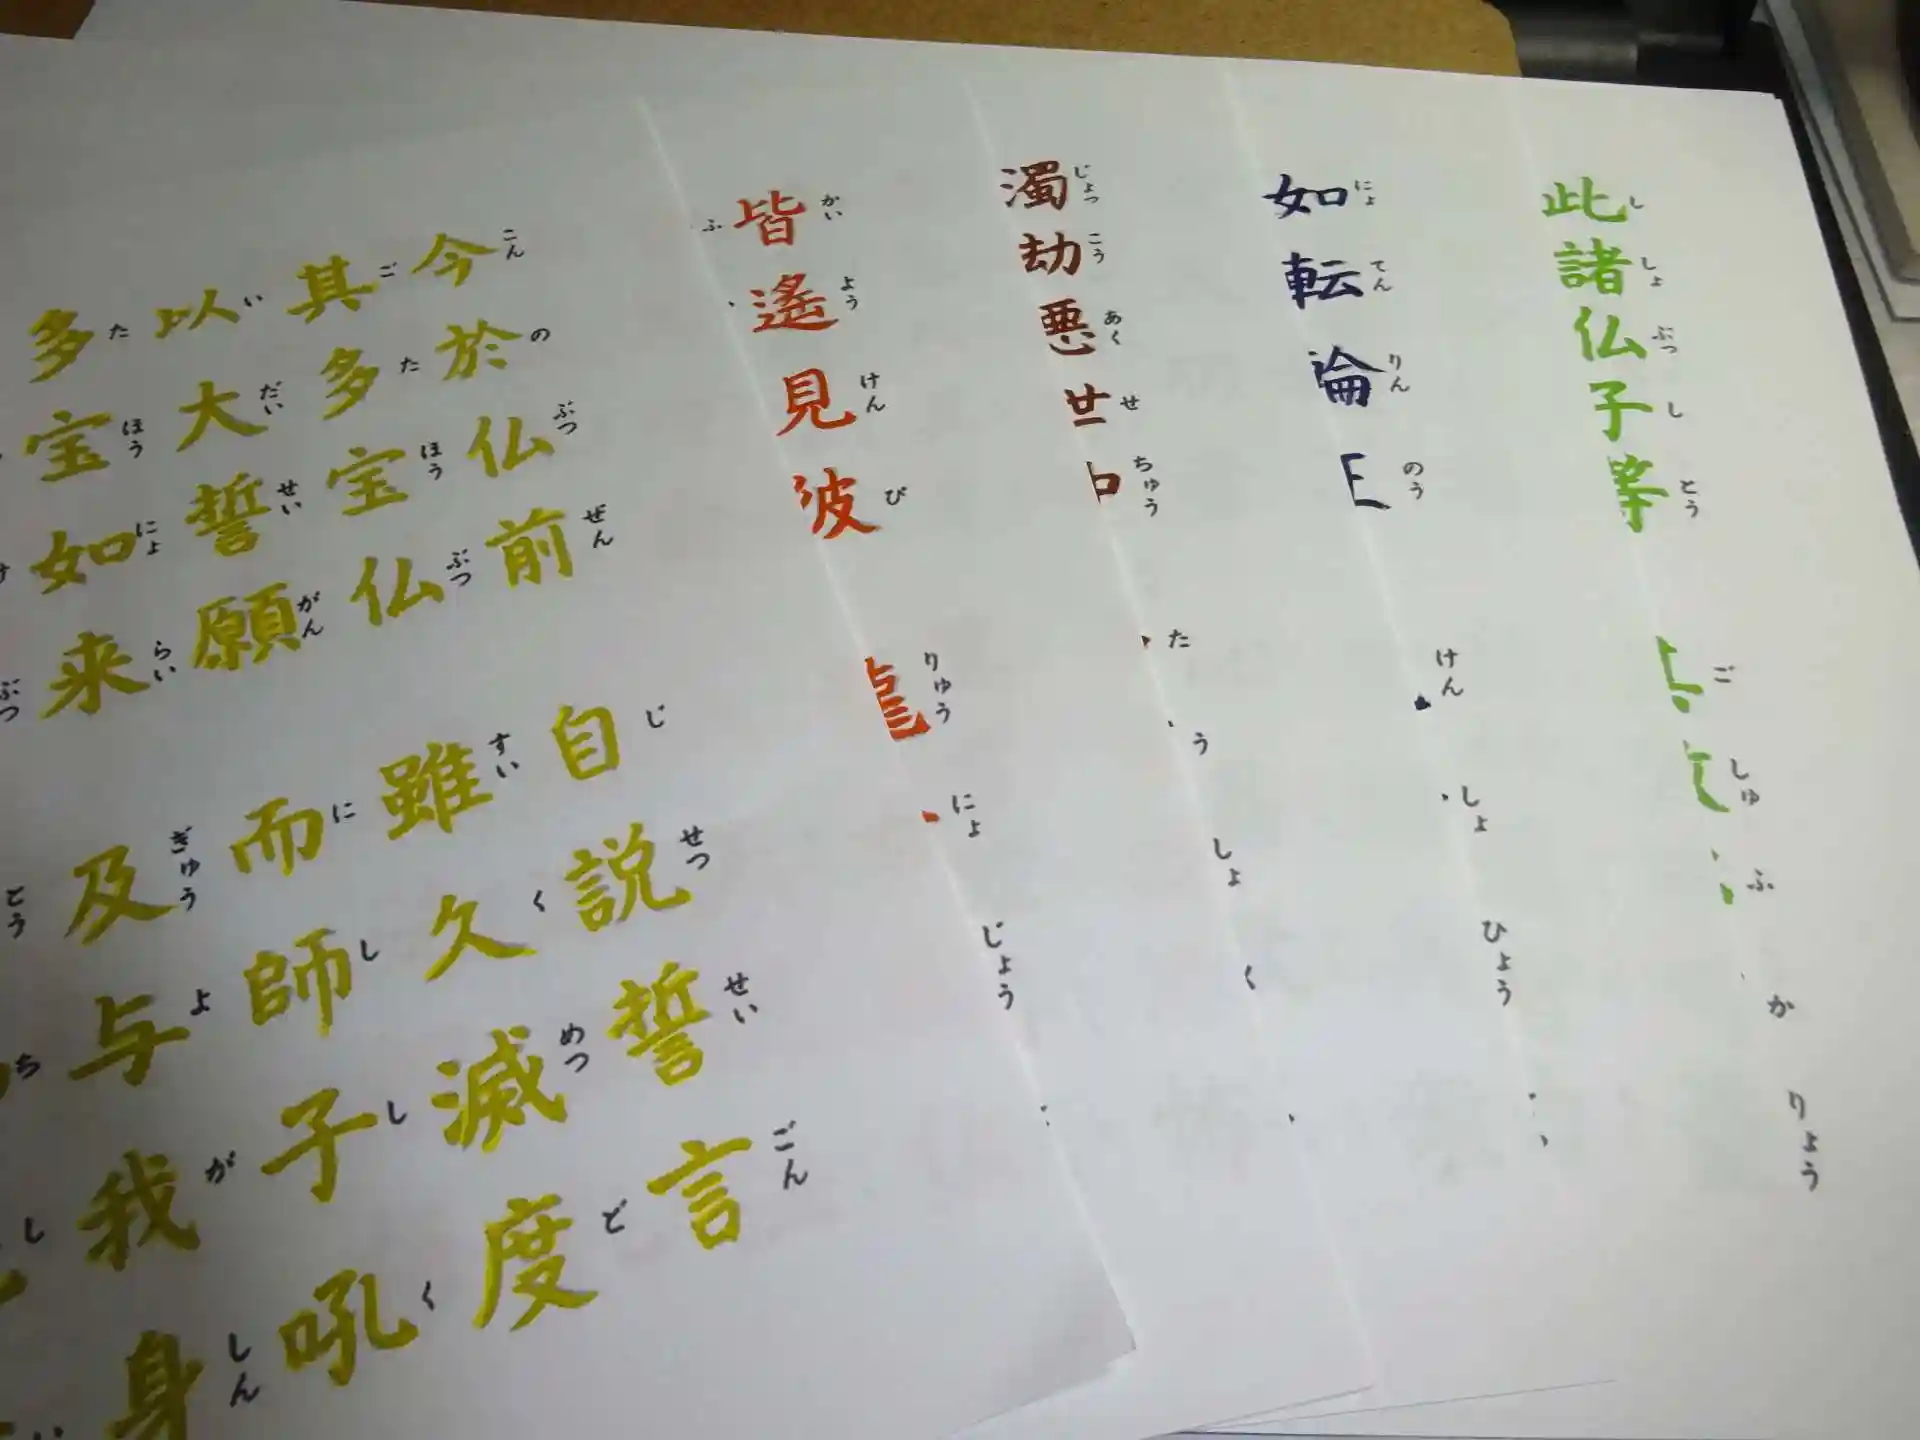 此諸仏子等
し しょ ぶつ し とう ご しゅ ふ か りょう
如転輪
にょ てん りん のう けん しょ ひょう
濁劫悪世中
じょっ こう あく せ ちゅう た う しょ く
皆遙見彼龍
かい よう けん ぴ りゅう にょ じょう
今於仏前 自説誓言
こん の ぶつ ぜん じ せつ せい ごん
其多宝仏 雖久滅度
ご た ほう ぶつ すい く めつ ど
以大誓願 而師子吼
い だい せい がん に し し く
多宝如来 及与我身
た ほう にょ らい ぎゅう よ が しん